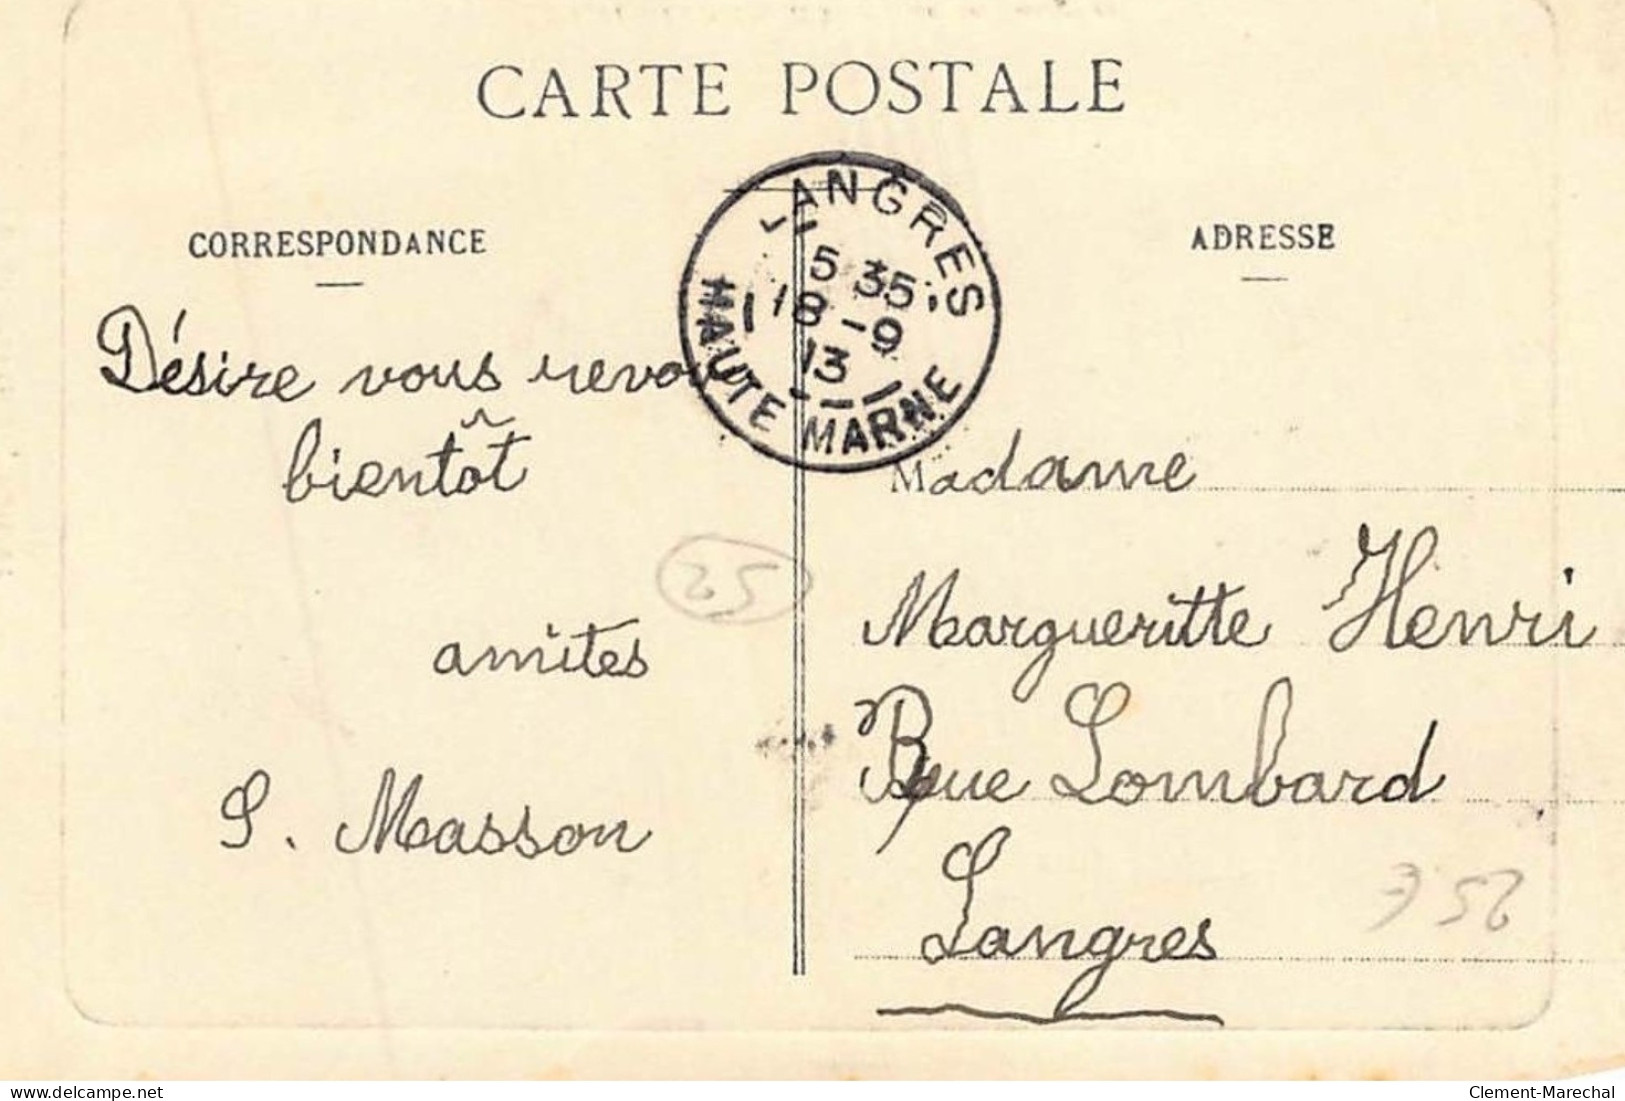 CARTE POSTALE
CORRESPONDANCE
ADRESSE
LANGRES
5 35
18 - 9
13
HAUTE MARNE
Désire vous revoir
bientôt
amites
S. Masson
25
Madame
Margueritte Henri
Rue Lombard
Langres
delcampe.net
Clement-Marechal